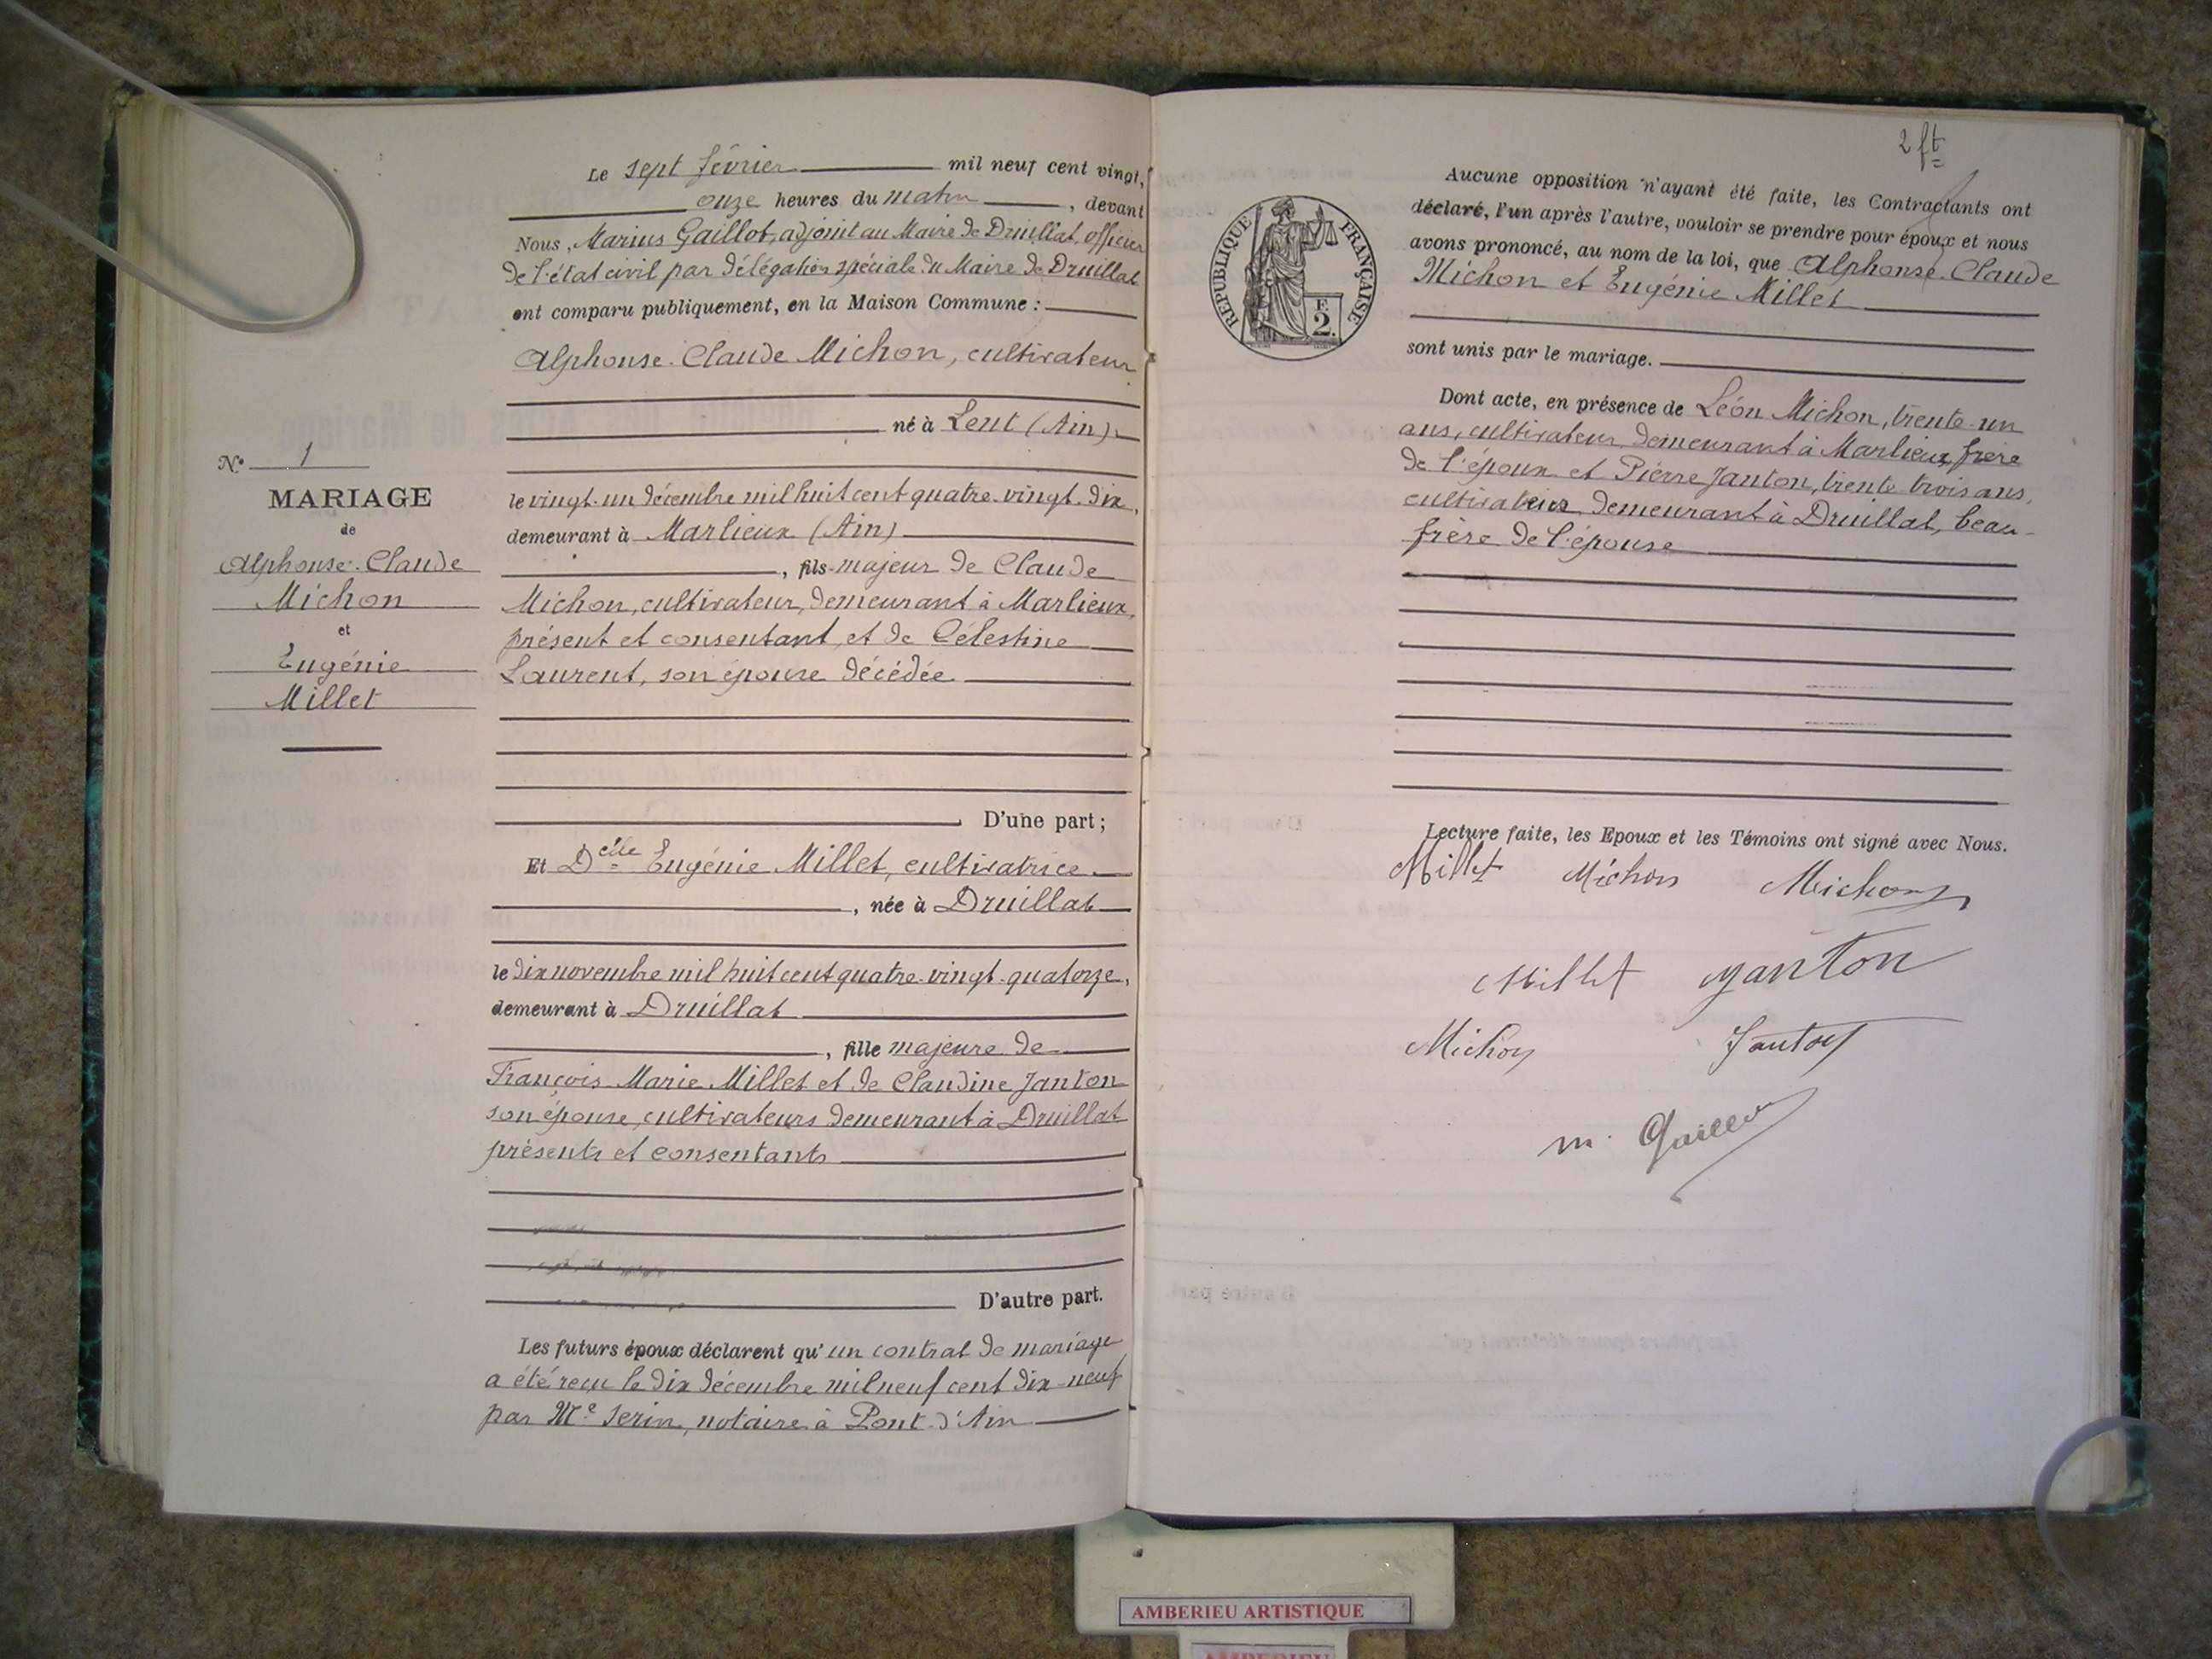 Le sept février mil neuf cent vingt,
onze heures du matin, devant
Nous, Marius Gaillot, adjoint au Maire de Druillat, officier
de l'état civil par délégation spéciale du Maire de Druillat
ont comparu publiquement, en la Maison Commune :
Alphonse-Claude Michon, cultivateur
né à Lent (Ain)
le vingt-un décembre mil huit cent quatre-vingt-dix,
demeurant à Marlieux (Ain)
, fils majeur de Claude
Michon, cultivateur, demeurant à Marlieux,
présent et consentant, et de Célestine
Laurent, son épouse décédée
D'une part ;
Et Delle Eugénie Millet, cultivatrice
, née à Druillat
le dix novembre mil huit cent quatre-vingt-quatorze,
demeurant à Druillat
, fille majeure de
François Marie Millet et de Claudine Janton
son épouse, cultivateurs demeurant à Druillat
présents et consentants
D'autre part.
Les futurs époux déclarent qu'un contrat de mariage
a été reçu le dix décembre mil neuf cent dix-neuf
par Me Serin, notaire à Pont-d'Ain
N° 1
MARIAGE
de
Alphonse-Claude
Michon
et
Eugénie
Millet
2 ft
REPUBLIQUE FRANÇAISE
F.
2.
Aucune opposition n'ayant été faite, les Contractants ont
déclaré, l'un après l'autre, vouloir se prendre pour époux et nous
avons prononcé, au nom de la loi, que Alphonse-Claude
Michon et Eugénie Millet
sont unis par le mariage.
Dont acte, en présence de Léon Michon, trente-un
ans, cultivateur demeurant à Marlieux, frère
de l'époux et Pierre Janton, trente trois ans,
cultivateur demeurant à Druillat, beau-
frère de l'épouse
Lecture faite, les Epoux et les Témoins ont signé avec Nous.
Millet Michon Michon
Millet Janton
Michon Janton
m. Gaillot
AMBERIEU ARTISTIQUE
AMBERIEU